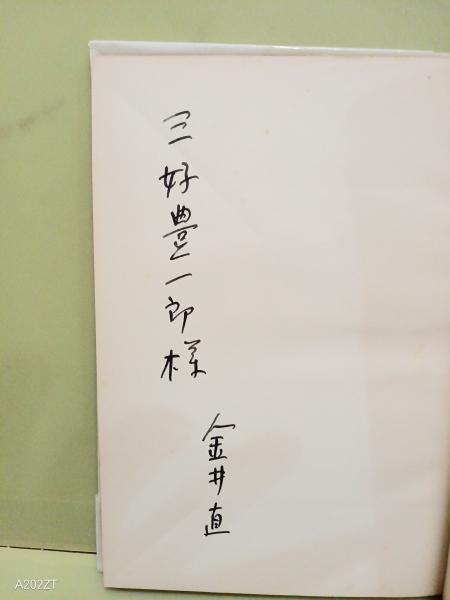 三好豊一郎様
金井直
A202ZT